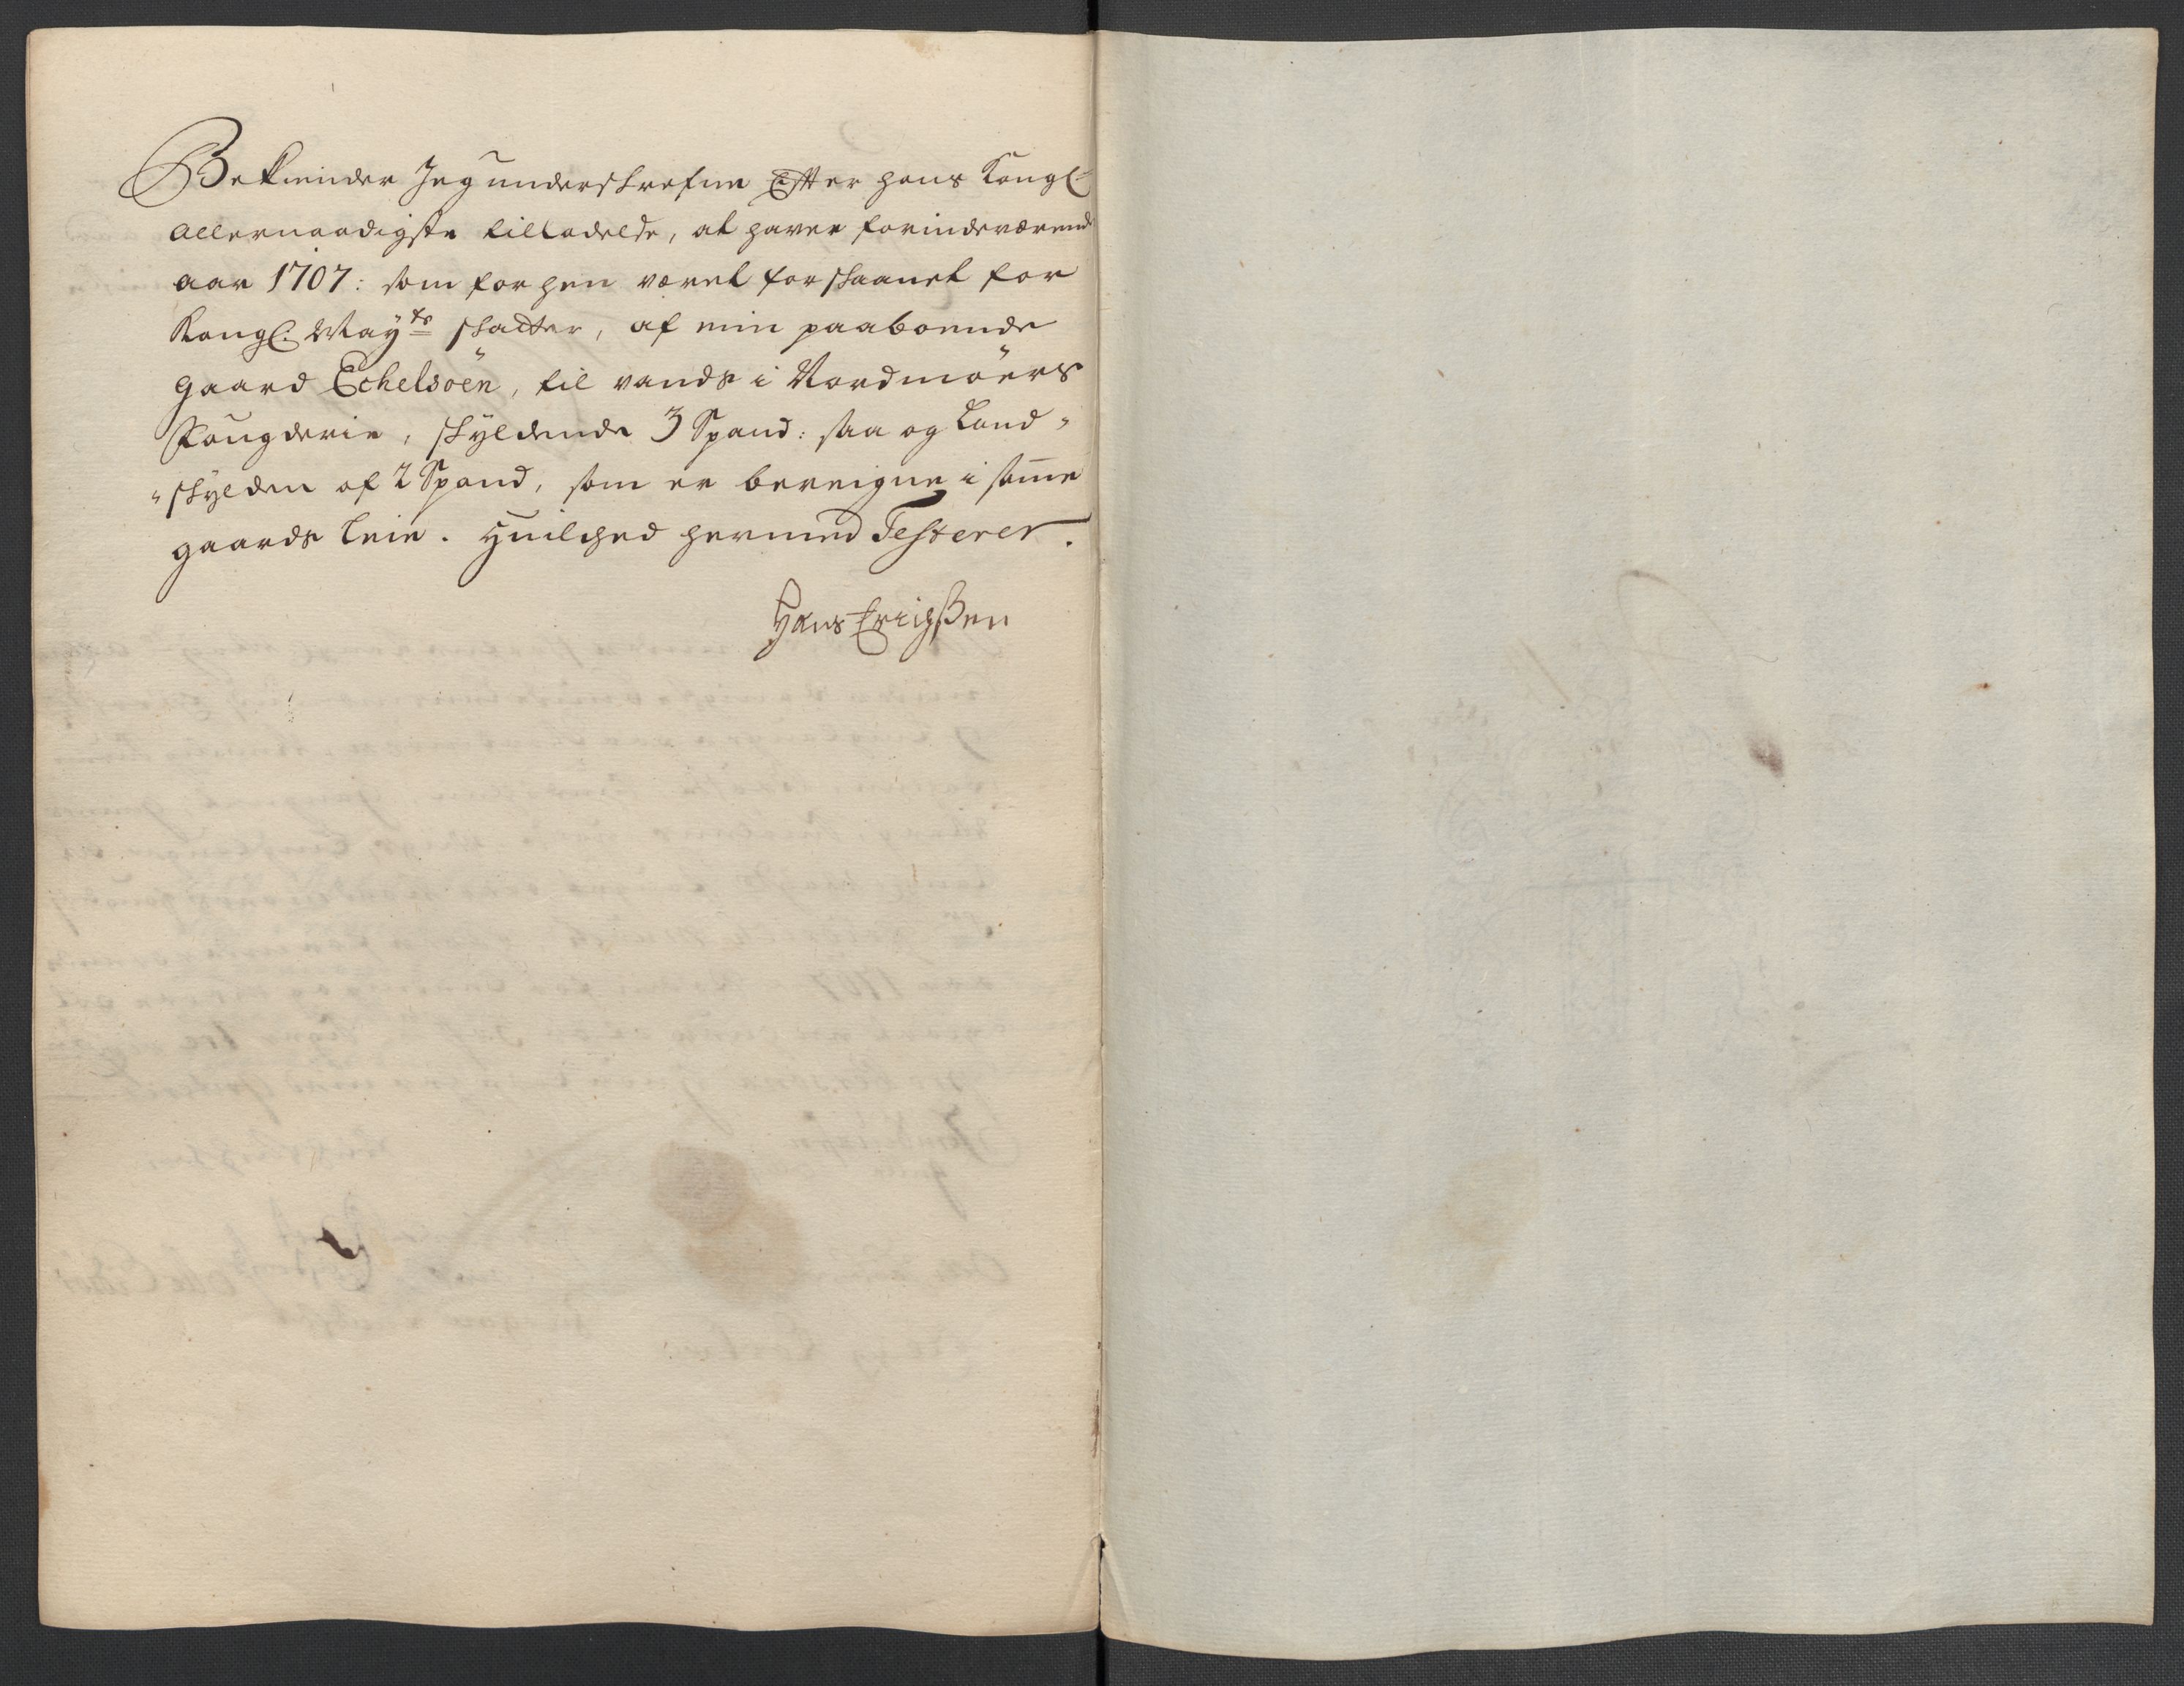 Bekiender Jeg underskrefne Effter hans Kongl:
allernaadigste tilladelse, at haver forindeværende
aar 1707: som forhen været forskaanet for
Kongl: Mayts skatter, af min paaboende
gaard Echelsöen, til vands i Nordmöers
Fougderie, skyldende 3 Spand: saa og Land-
-skylden af 2 Spand, som er bereigne i samme
gaards leie. Huilched hermed Testerer.
Hans Erichßen